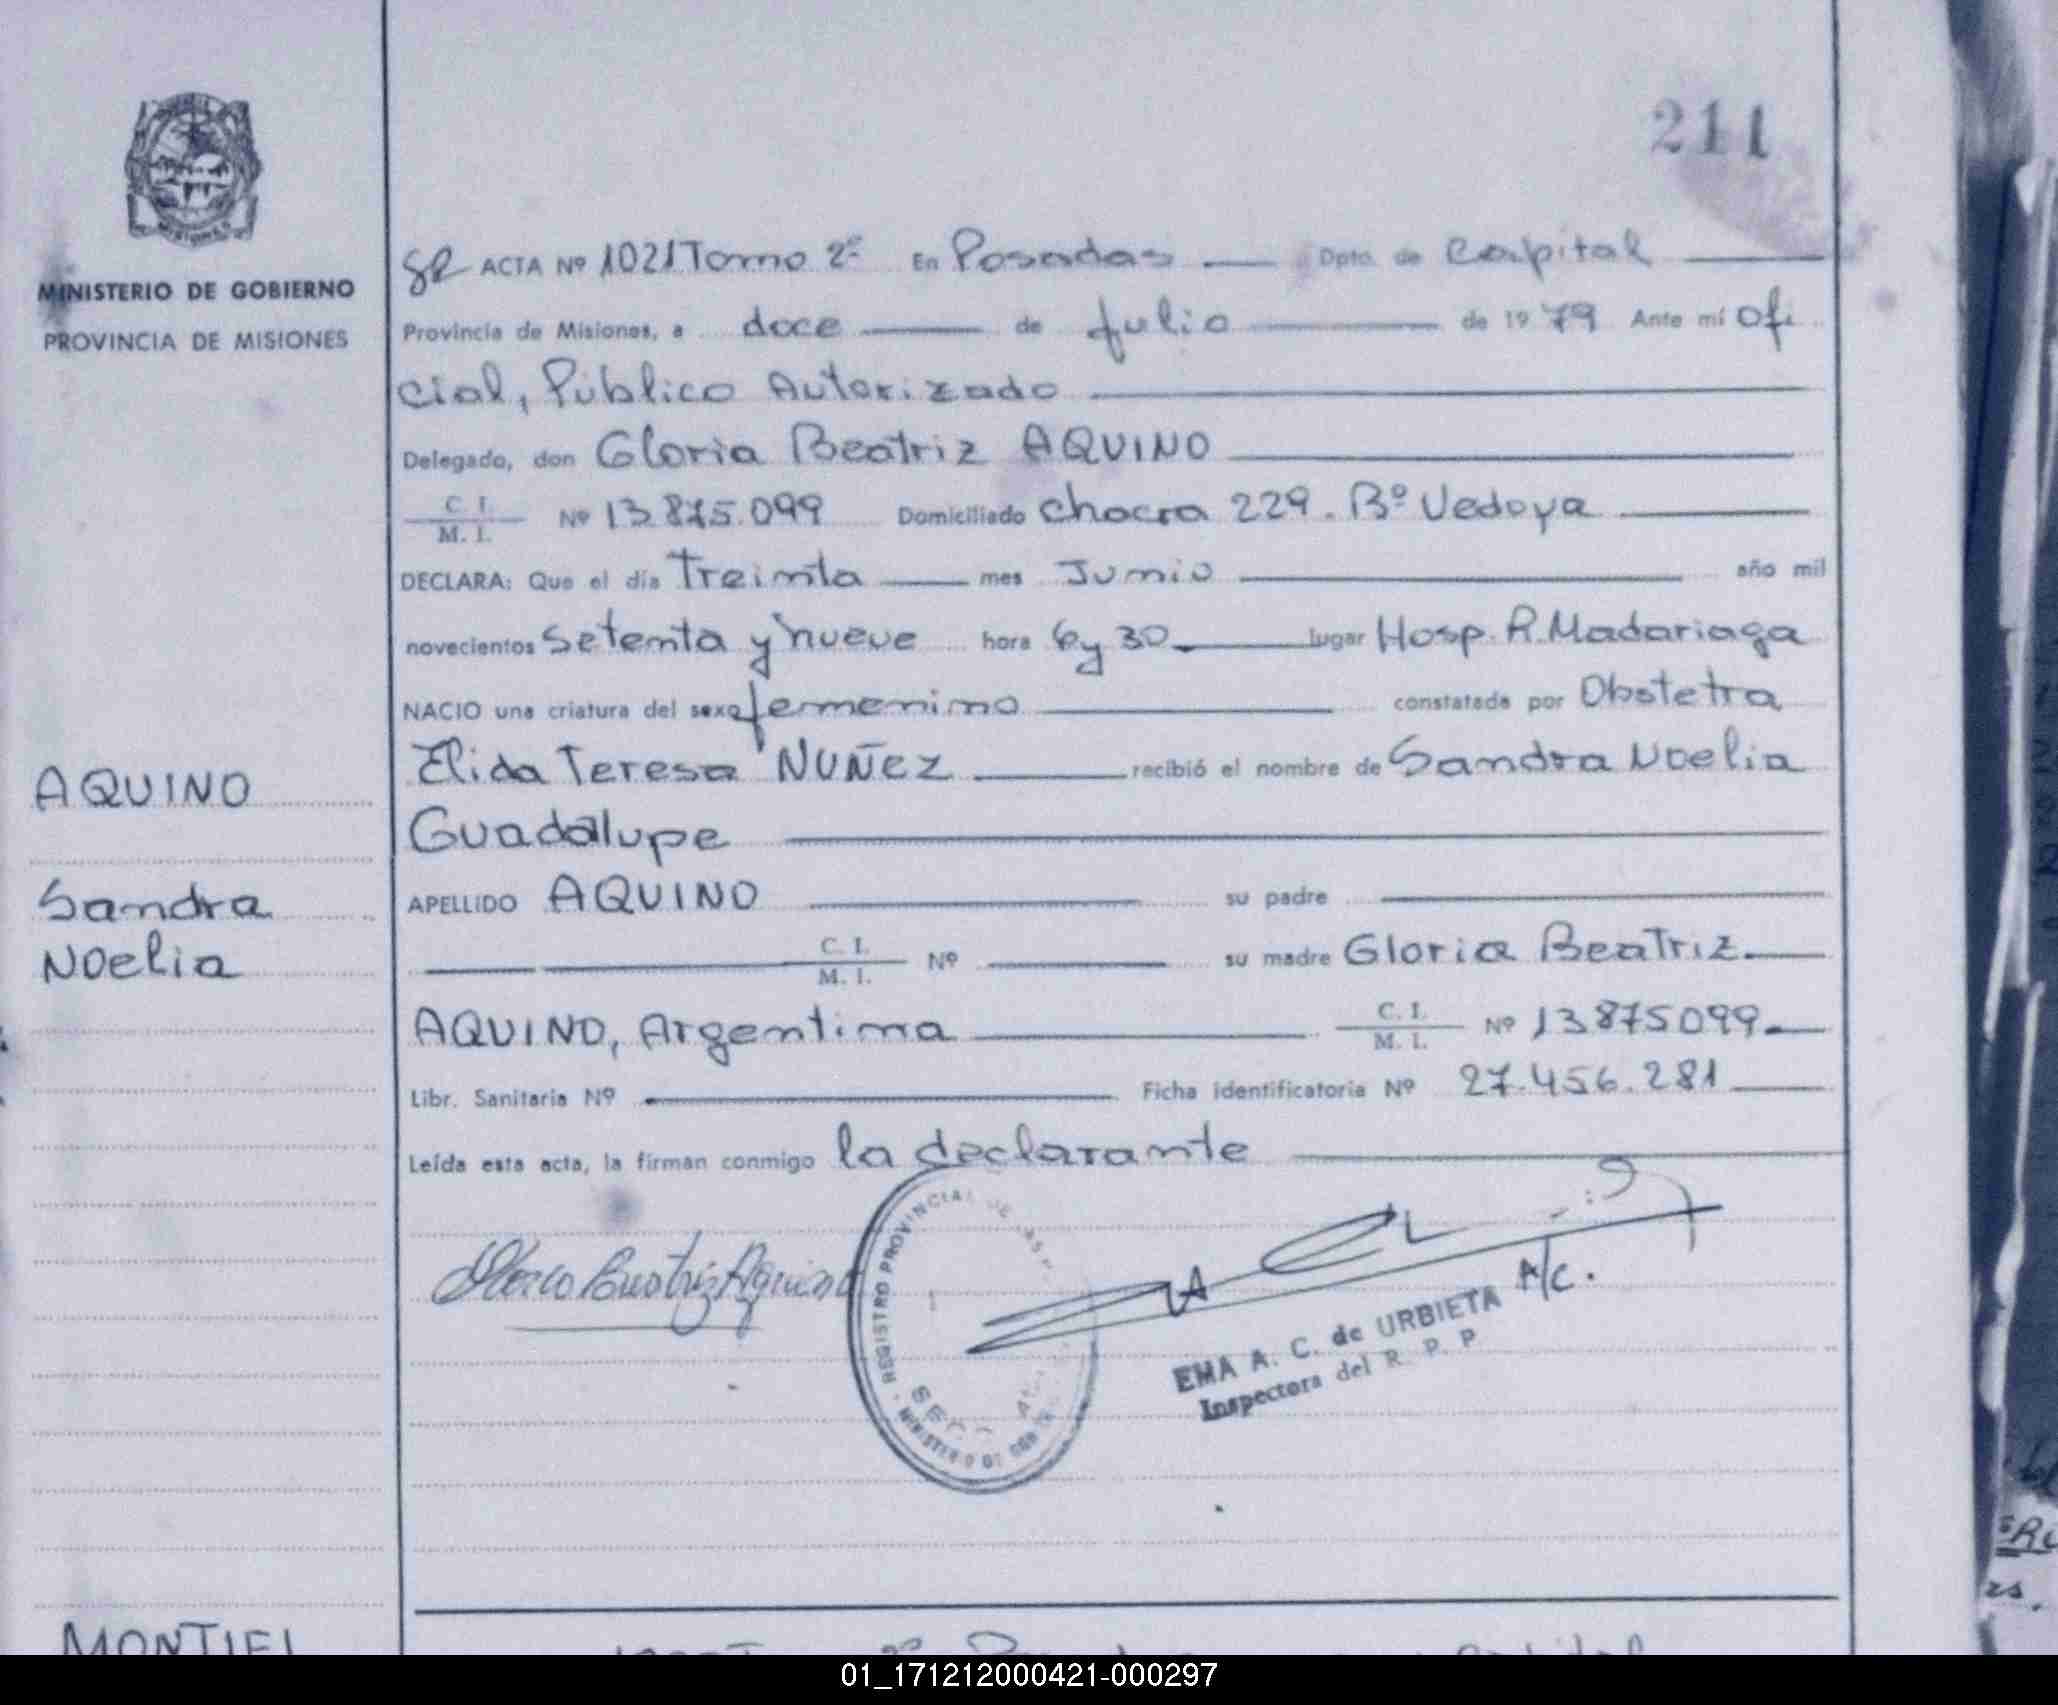 211
MISIONES
MINISTERIO DE GOBIERNO
PROVINCIA DE MISIONES
ACTA Nº 1021 Tomo 2º En Posadas Dpto. de Capital
Provincia de Misiones, a doce de Julio de 1979 Ante mí Ofi
cial, Público Autorizado
Delegado, don Gloria Beatriz AQUINO
C. I.
M. I. Nº 13.875.099 Domiciliado Chacra 229. Bº Vedoya
DECLARA: Que el día Treinta mes Junio año mil
novecientos Setenta y nueve hora 6 y 30 lugar Hosp. R. Madariaga
NACIO una criatura del sexo femenino constatada por Obstetra
Elida Teresa NUÑEZ recibió el nombre de Sandra Noelia
Guadalupe
APELLIDO AQUINO su padre
C. I.
M. I. Nº su madre Gloria Beatriz
AQUINO, Argentina C. I.
M. I. Nº 13875099
Libr. Sanitaria Nº Ficha identificatoria Nº 27.456.281
Leída esta acta, la firman conmigo la declarante
AQUINO
Sandra
Noelia
Beatriz Aquino
REGISTRO PROVINCIAL DE
A/C.
EMA A. C. de URBIETA
Inspectora del R. P. P
MONTIEL
01_171212000421-000297